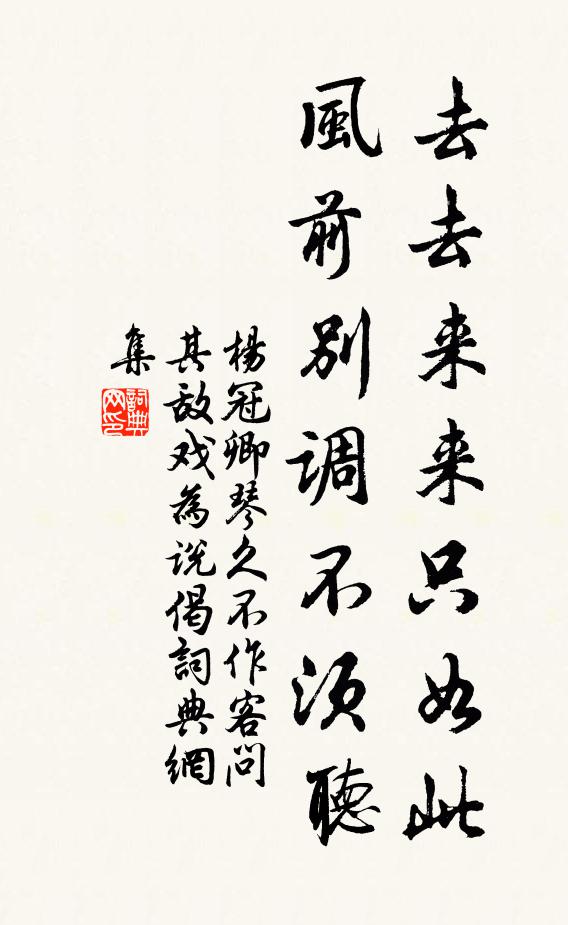 去去来来只如此
風前别调不须聽
楊冠卿琴久不作客問
其敌戏為说偈詞典網
集
詞典网印